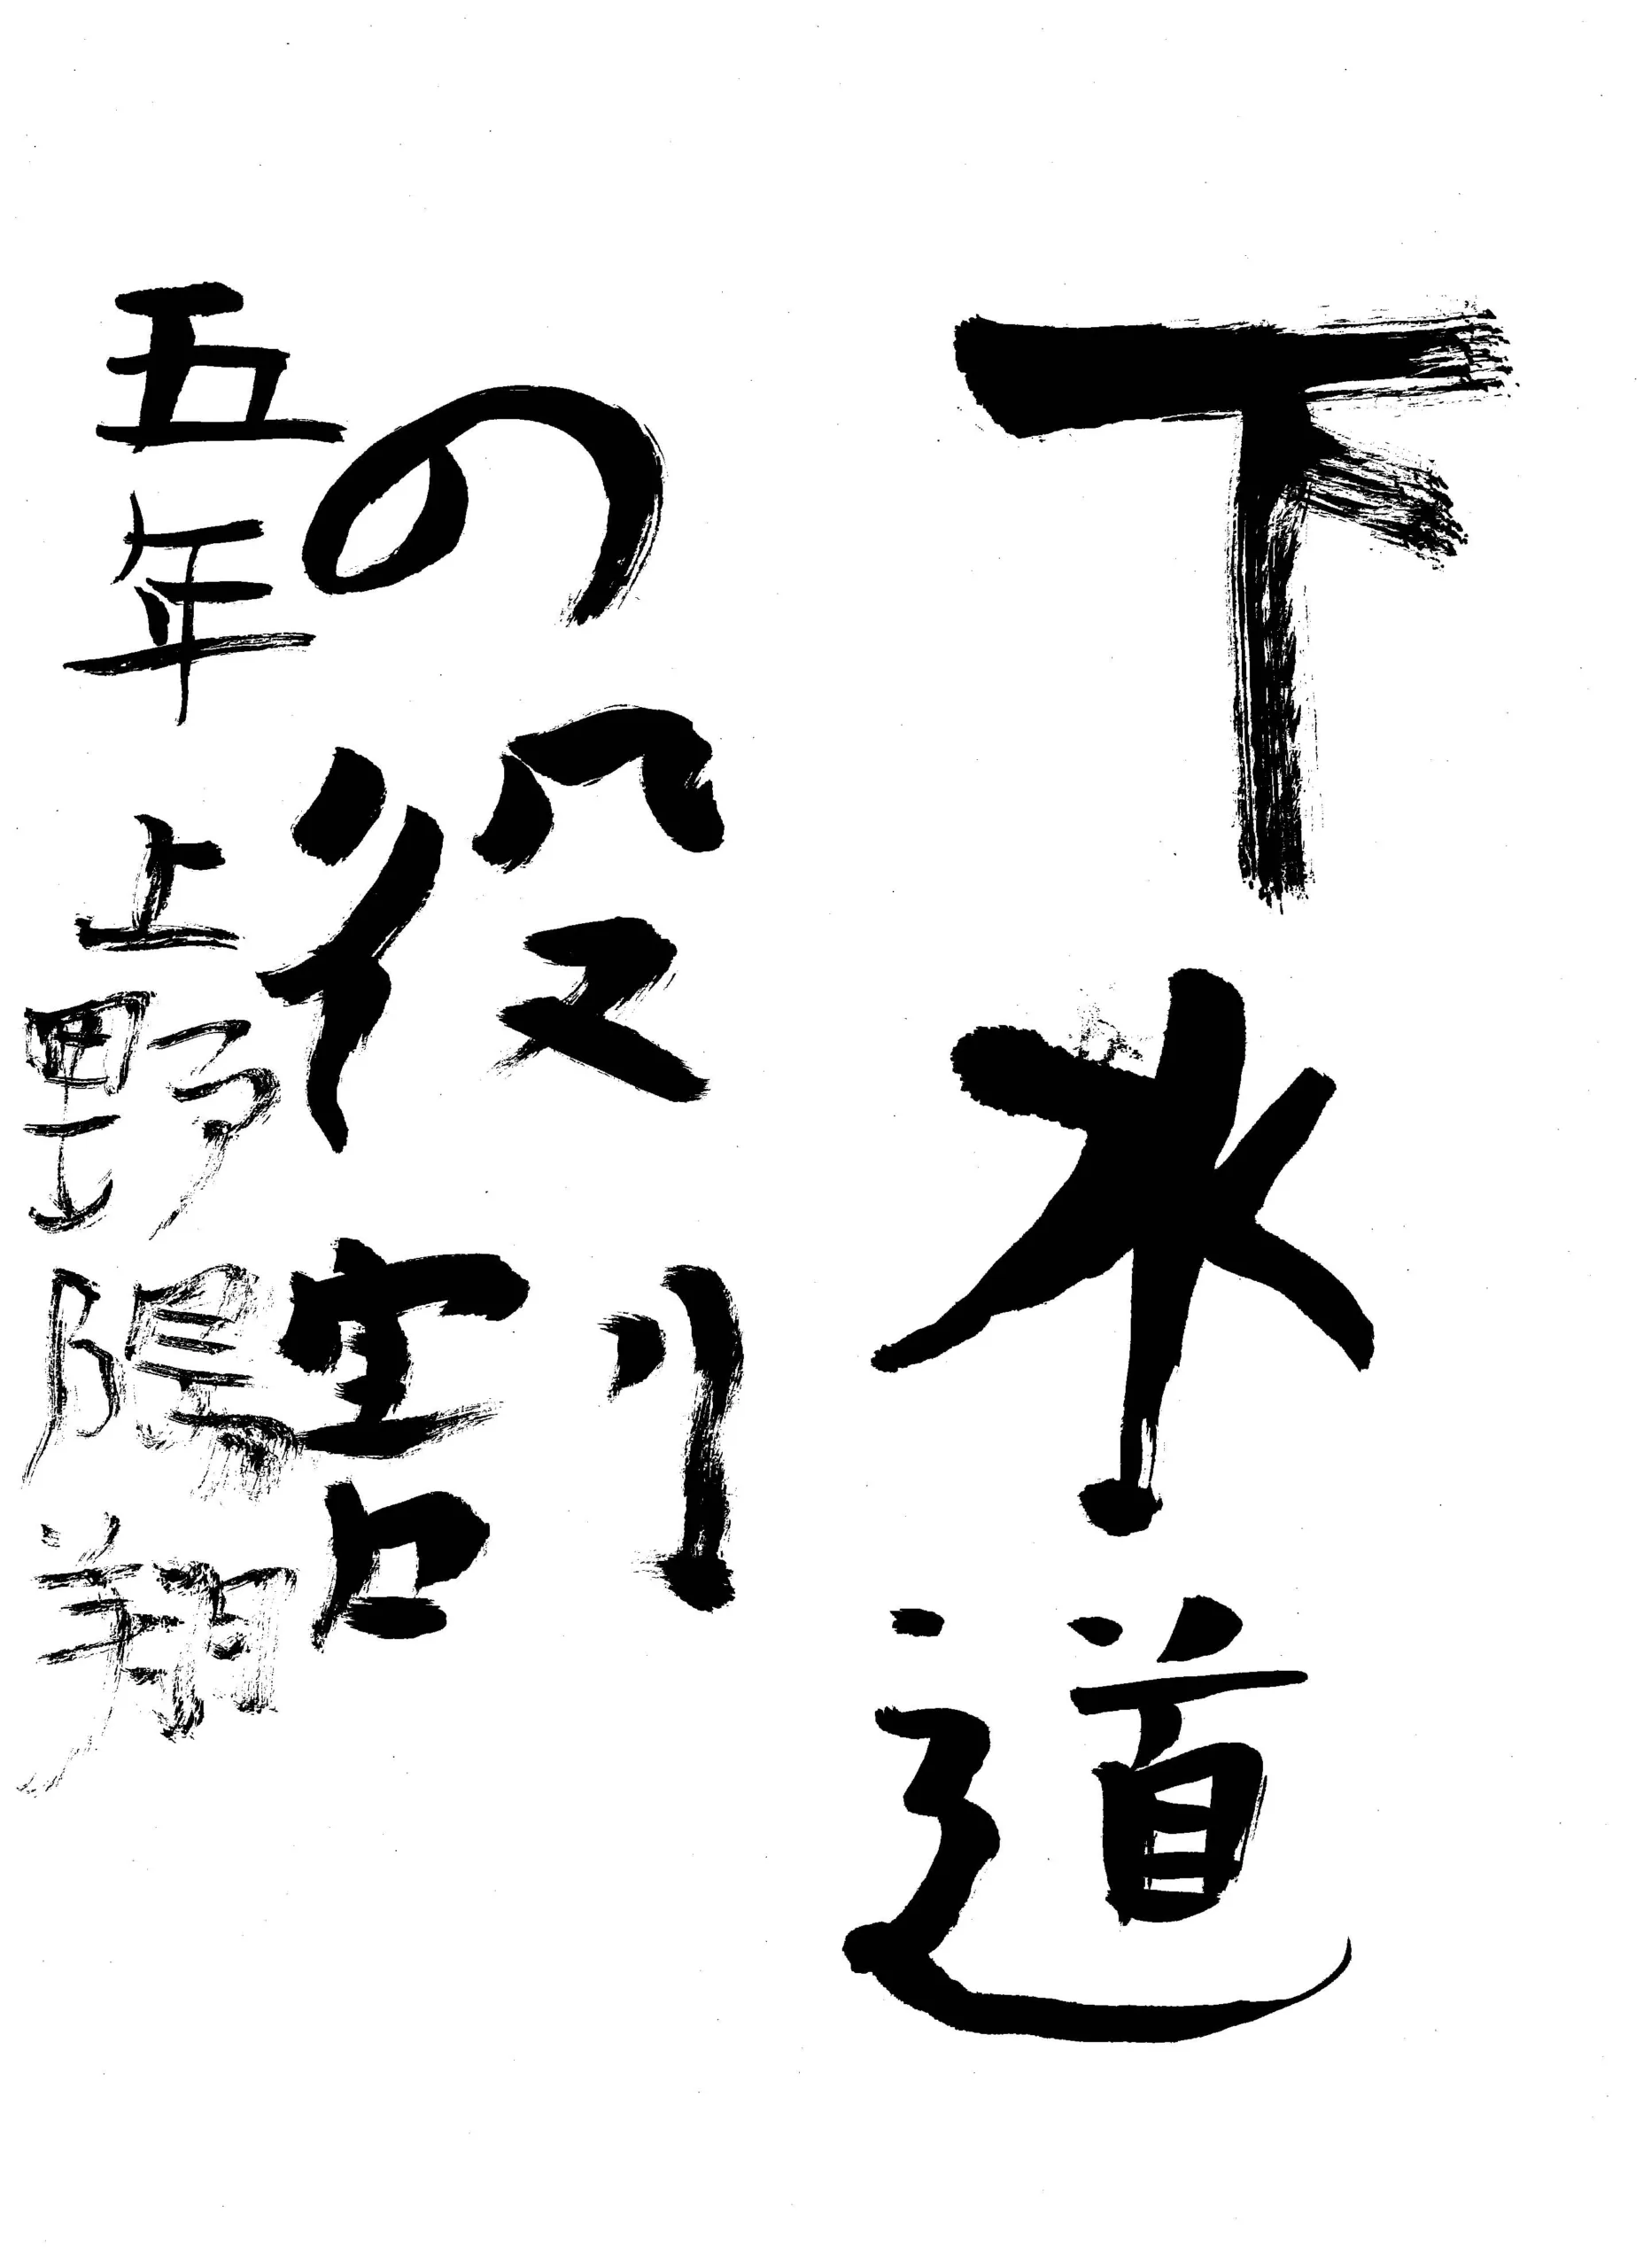 下水道
の役割
五年 上野陽翔